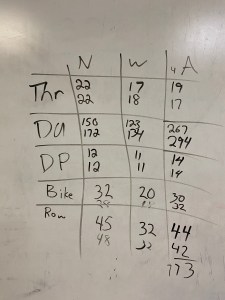 N W A
Thr 22 17 19
22 18 17
DU 150 123 267
172 134 294
DP 12 11 14
12 11 14
Bike 32 20 30
32
Row 45 32 44
48 32 42
173